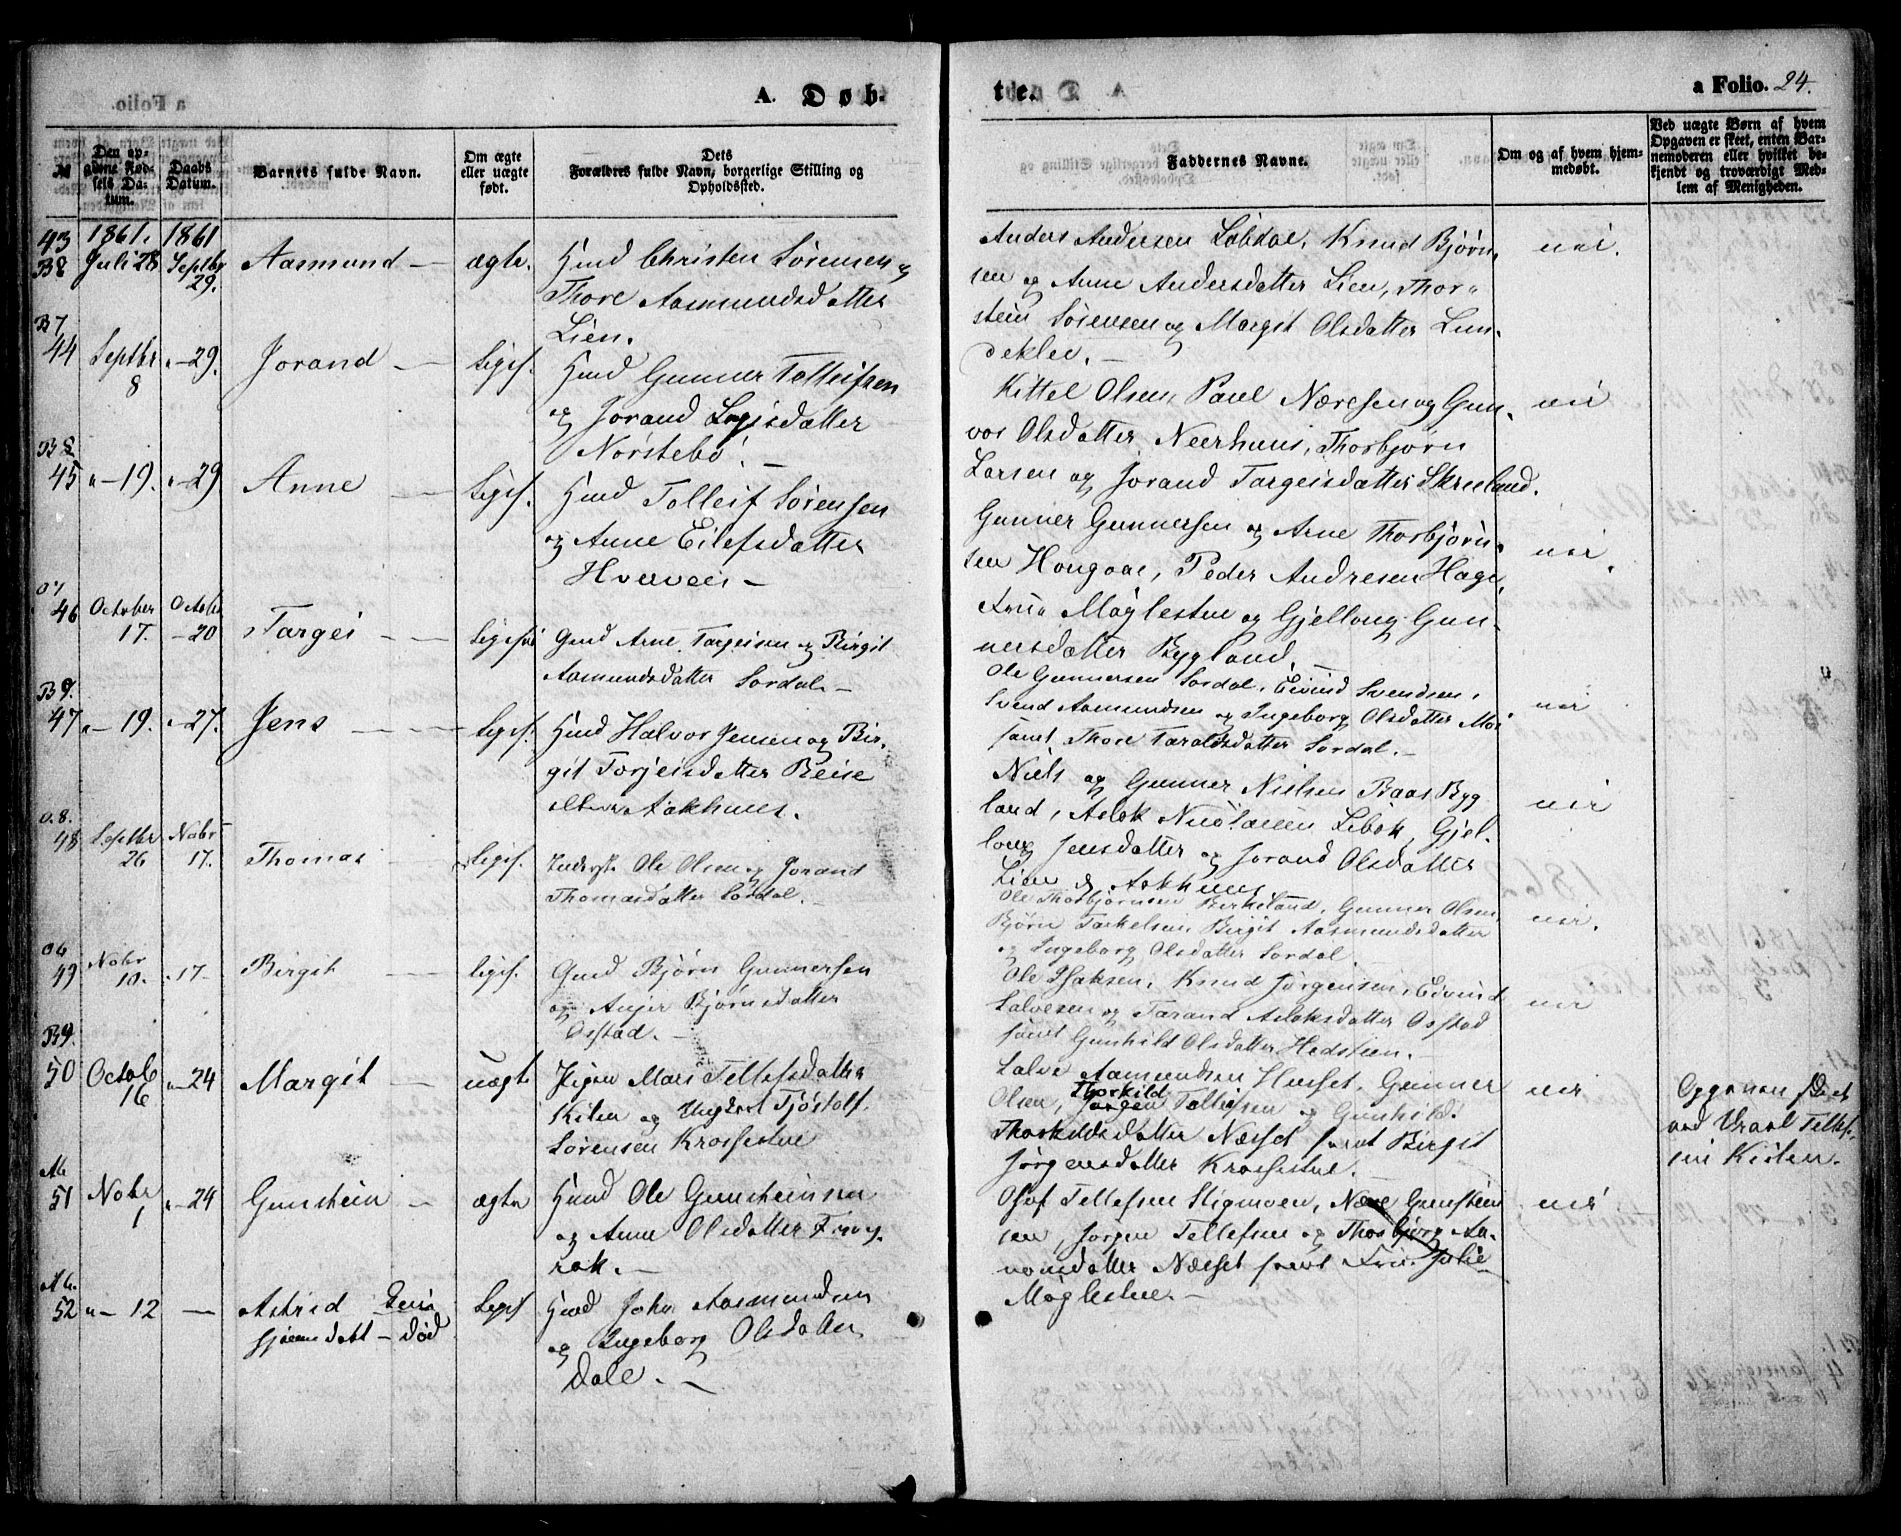 A. Døb-
te.
a Folio. 24.
№
Den op-
givne Fød-
sels Da-
tum.
Daabs
Datum.
Barnets fulde Navn.
Om ægte
eller uægte
født.
Dets
Forældres fulde Navn, borgerlige Stilling og
Opholdssted.
Faddernes Navne.
Om og af hvem hjem-
medøbt.
Ved uægte Børn af hvem
Opgaven er skeet, enten Bar-
nemoderen eller hvilket be-
kjendt og troværdigt Med-
lem af Menigheden.
43
B8
1861.
Juli 28
1861
Septbr
29.
Aasmund —
ægte.
Christen Sørensen og
Thore Aasmundsdatter
Lien.
Anders Andersen Løbdal, Knud Bjørn-
sen og Anne Andersdatter Lien, Thor-
stein Sørensen og Margit Olsdatter Lun-
deklev. —
nei.
B7
44
Septbr
8
" — 29.
Jorand —
Ligis.
Gunner Tolleifsen
og Jorand
Norstebø. —
Kittel Olsen, Paul Næresen og Gun-
vor Olsdatter Neerhuus, Thorbjørn
Larsen og Jorand Targeisdatter Skreeland.
nei
B8
45
" — 19.
" — 29
Anne —
Ligis.
Tolleif Sørensen
og Anne Eilefsdatter
Hverveis —
Gunner Gunnersen og Arne Thorbjørn-
sen Hongaae, Peder Andresen Hage,
Frue Møglestue og Gjellong Gun-
nersdatter Bygland.
nei.
07
46
October
17.
Octobr
— 20
Targei — —
Ligis.
Arne Targeisen og Birgit
Aasmundsdatter Sordal. —
Ole Gunnersen Sordal, Eivind Svendsen,
Svend Aasmundsen og Ingeborg Olsdatter Moi
samt Thore Taraldsdatter Sordal. —
nei
B9.
47
" — 19.
" — 27.
Jens — — —
Ligis.
Halvor Jensen og Bir-
git Torjeisdatter Beise
Aakhuus.
Niels og Gunner Nielsen Baas Byg-
land, Aslak Nicolaisen Libok, Gjel-
loug Jensdatter og Jorand Olsdatter
Lien og Aakhuus
nei
0.8.
48
Septbr
26
Nobr
17.
Thomas —
Ligis.
Inderst Ole Olsen og Jorand
Thomasdatter Sordal. —
Ole Thorbjørnsen Birkeland, Gunner Olsen,
Bjørn Tarkelsen, Birgit Aasmundsdatter
og Ingeborg Olsdatter Sordal.
nei.
06
49
Nobr
10.
" 17. —
Birgit —
ligis.
Bjørn Gunnersen
og Anjer Bjørnsdatter
Osstad. —
Ole Isaksen, Knud Jørgensen, Eivind
Salvesen og Tarand Aslaksdatter Osstad
samt Gunhild Olsdatter Hedstien. —
nei
B9.
50
Octob
16
" — 24
Margit —
uægte
Pigen Mari Tellefsdatter
Kilen og Ungkarl Tjøstolf
Sørensen Krossestue
Salve Aasmundsen Huset, Gunner
Olsen, Thorkild Tellefsen og Gunhild
Thorkildsdatter Næsset samt Birgit
Jørgensdatter Krossestue.
nei
Opgaven skeet
ved Vraal Tellef-
sen Kislen.
A6
51
Nobr
1
" — 24
Gunstein —
ægte
Ole Gunsteinsen
og Anne Olsdatter Froy-
rak. —
Olof Tellefsen Stigmoen, Nære Gunstein-
sen, Jørgen Tellefsen og Thorbjørg Aa-
nonsdatter Næsset samt Fru Julie
Møglestue. —
nei
A6.
52
" — 12
—
Astrid
død
Ligis
John Aasmundsen
og Ingeborg Olsdatter
Dale. —